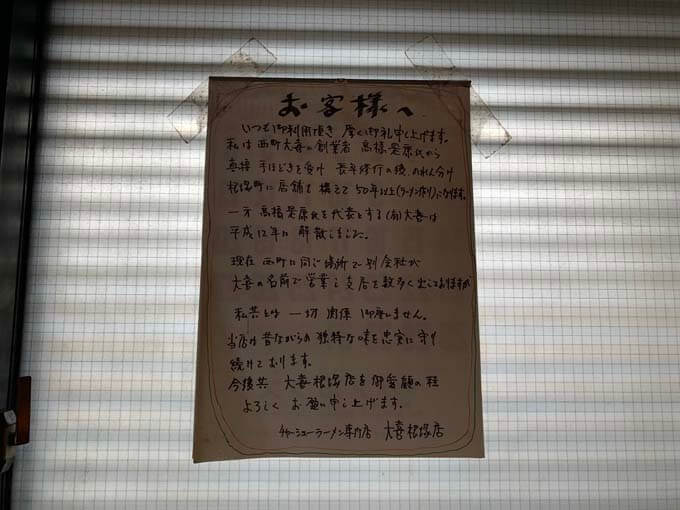 お客様へ
いつも御利用頂き 厚く御礼申し上げます。
私は西町大喜の創業者 高橋是康氏から
直接手ほどきを受け 長年修行の後、のれん分け
根塚町に店舗を構えて 50年以上(ラーメン作り)になります。
一方 高橋是康氏を代表とする(有)大喜は
平成12年に解散しました。
現在 西町に同じ場所で別会社が
大喜の名前で営業し支店を数多く出しておりますが
私共とは 一切 関係 御座いません。
当店は昔ながらの独特な味を忠実に守り
続けております。
今後共 大喜根塚店を御愛顧の程
よろしく お願い申し上げます。
チャーシューラーメン専門店 大喜根塚店